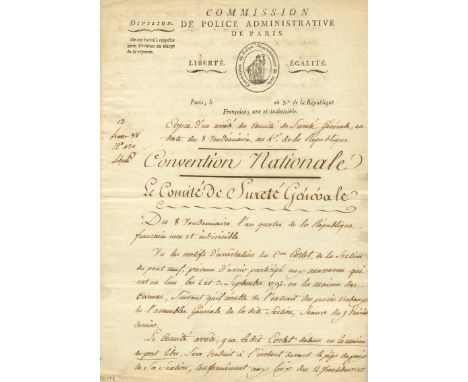 COMMISSION
DE POLICE ADMINISTRATIVE
DE PARIS.
DIVISION.
On est invité à rappeler
cette Division en marge
de la réponse.
LIBERTÉ. ÉGALITÉ.
Paris, le an 3.e de la République
Française, une et indivisible.
13
Copie d'un arrêté du Comité de Sureté Générale, en
date du 8 Vendemiaire, an 4.e de la République
Convention Nationale
Le Comité de Sureté Générale
Du 8 Vendemiaire l'an quatre de la République
française une et indivisible
Vu les motifs d'arrestation du C.en Cortet, de la Section
du pont neuf, prévenu d'avoir participé aux massacres qui
ont eu lieu les 2 et 3 Septembre 1792 en la maison des
Carmes, Suivant qu'il conste de l'extrait des procès verbaux
de l'assemblée Générale de la dite Section, Séance du 5
dernier
Le Comité arrête, que le dit Cortet détenu en la maison
de port libre, Sera traduit à l'instant devant le juge de paix
de Sa Section, conformément aux Loix des 12 fructidor